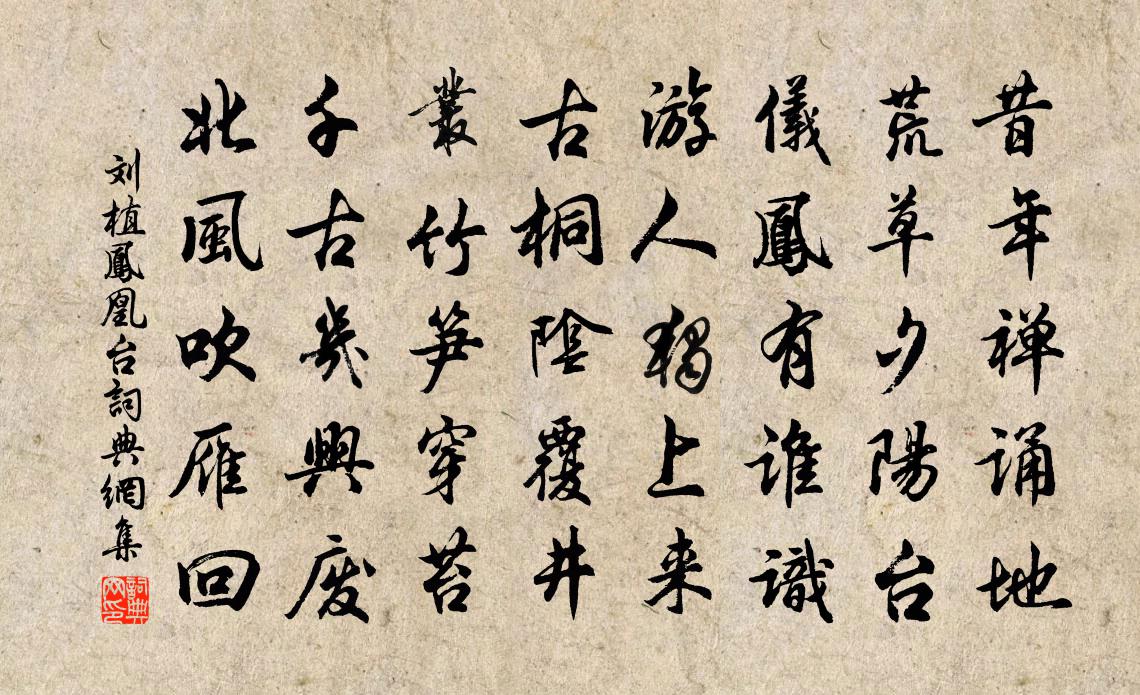 昔年禅诵地
荒草夕陽台
儀鳳有谁識
游人獨上来
古桐陰覆井
叢竹笋穿苔
千古幾興废
北風吹雁回
刘植鳳凰台詞典網集
詞典网印